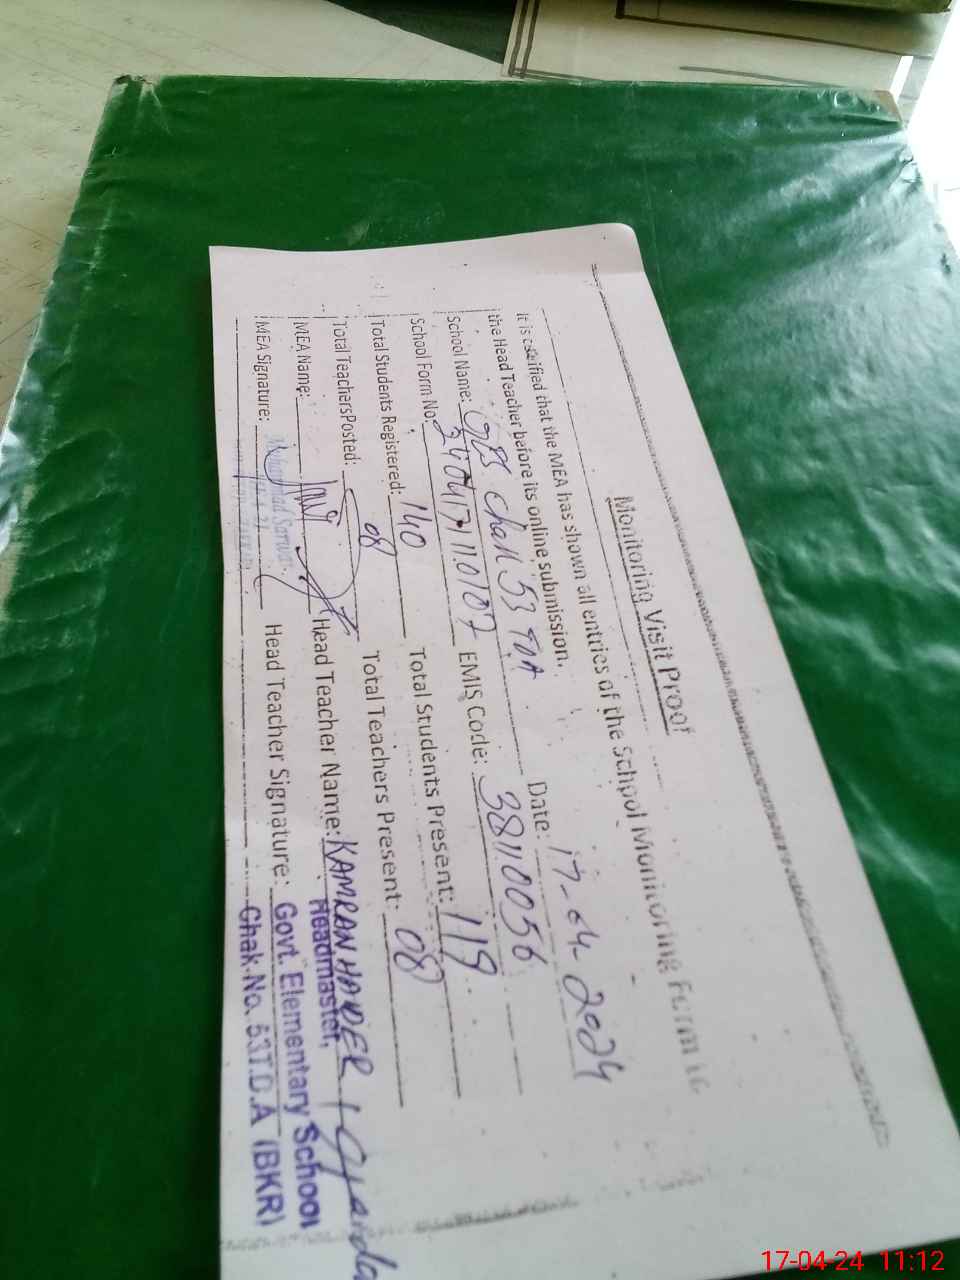 Monitoring Visit Proof
It is certified that the MEA has shown all entries of the School Monitoring Form to
the Head Teacher before its online submission.
School Name: GES Chak 53 TDA Date: 17-04-2024
School Form No: EMIS Code: 38110056
Total Students Registered: 140 Total Students Present: 119
Total Teachers Posted: 08 Total Teachers Present: 08
MEA Name: Head Teacher Name: KAMRAN HAIDER
MEA Signature: Muhammad Sarwar Head Teacher Signature:
Headmaster,
Govt. Elementary School
Chak No. 53T.D.A (BKR)
17-04-24 11:12